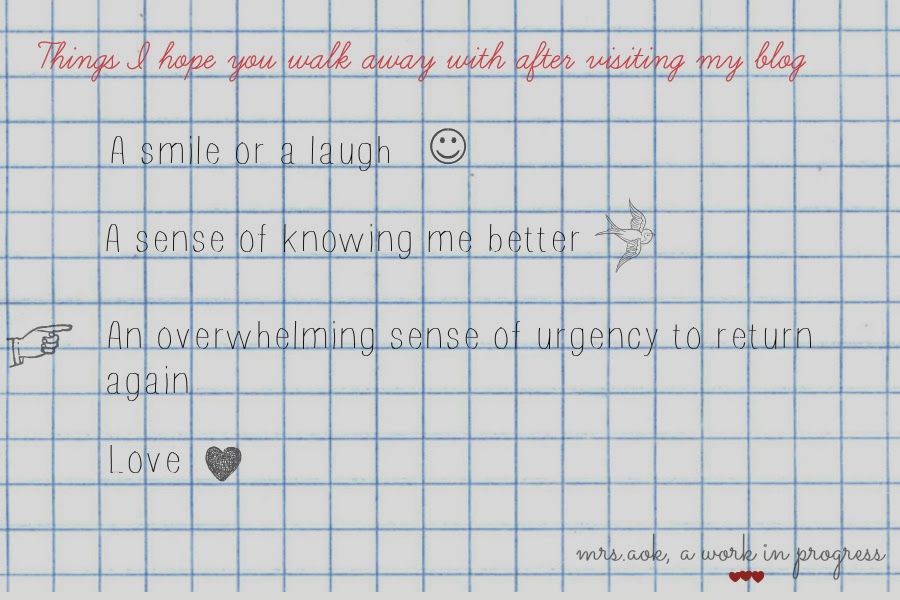 Things I hope you walk away with after visiting my blog
A smile or a laugh
A sense of knowing me better
An overwhelming sense of urgency to return
again
Love
mrs.aok, a work in progress